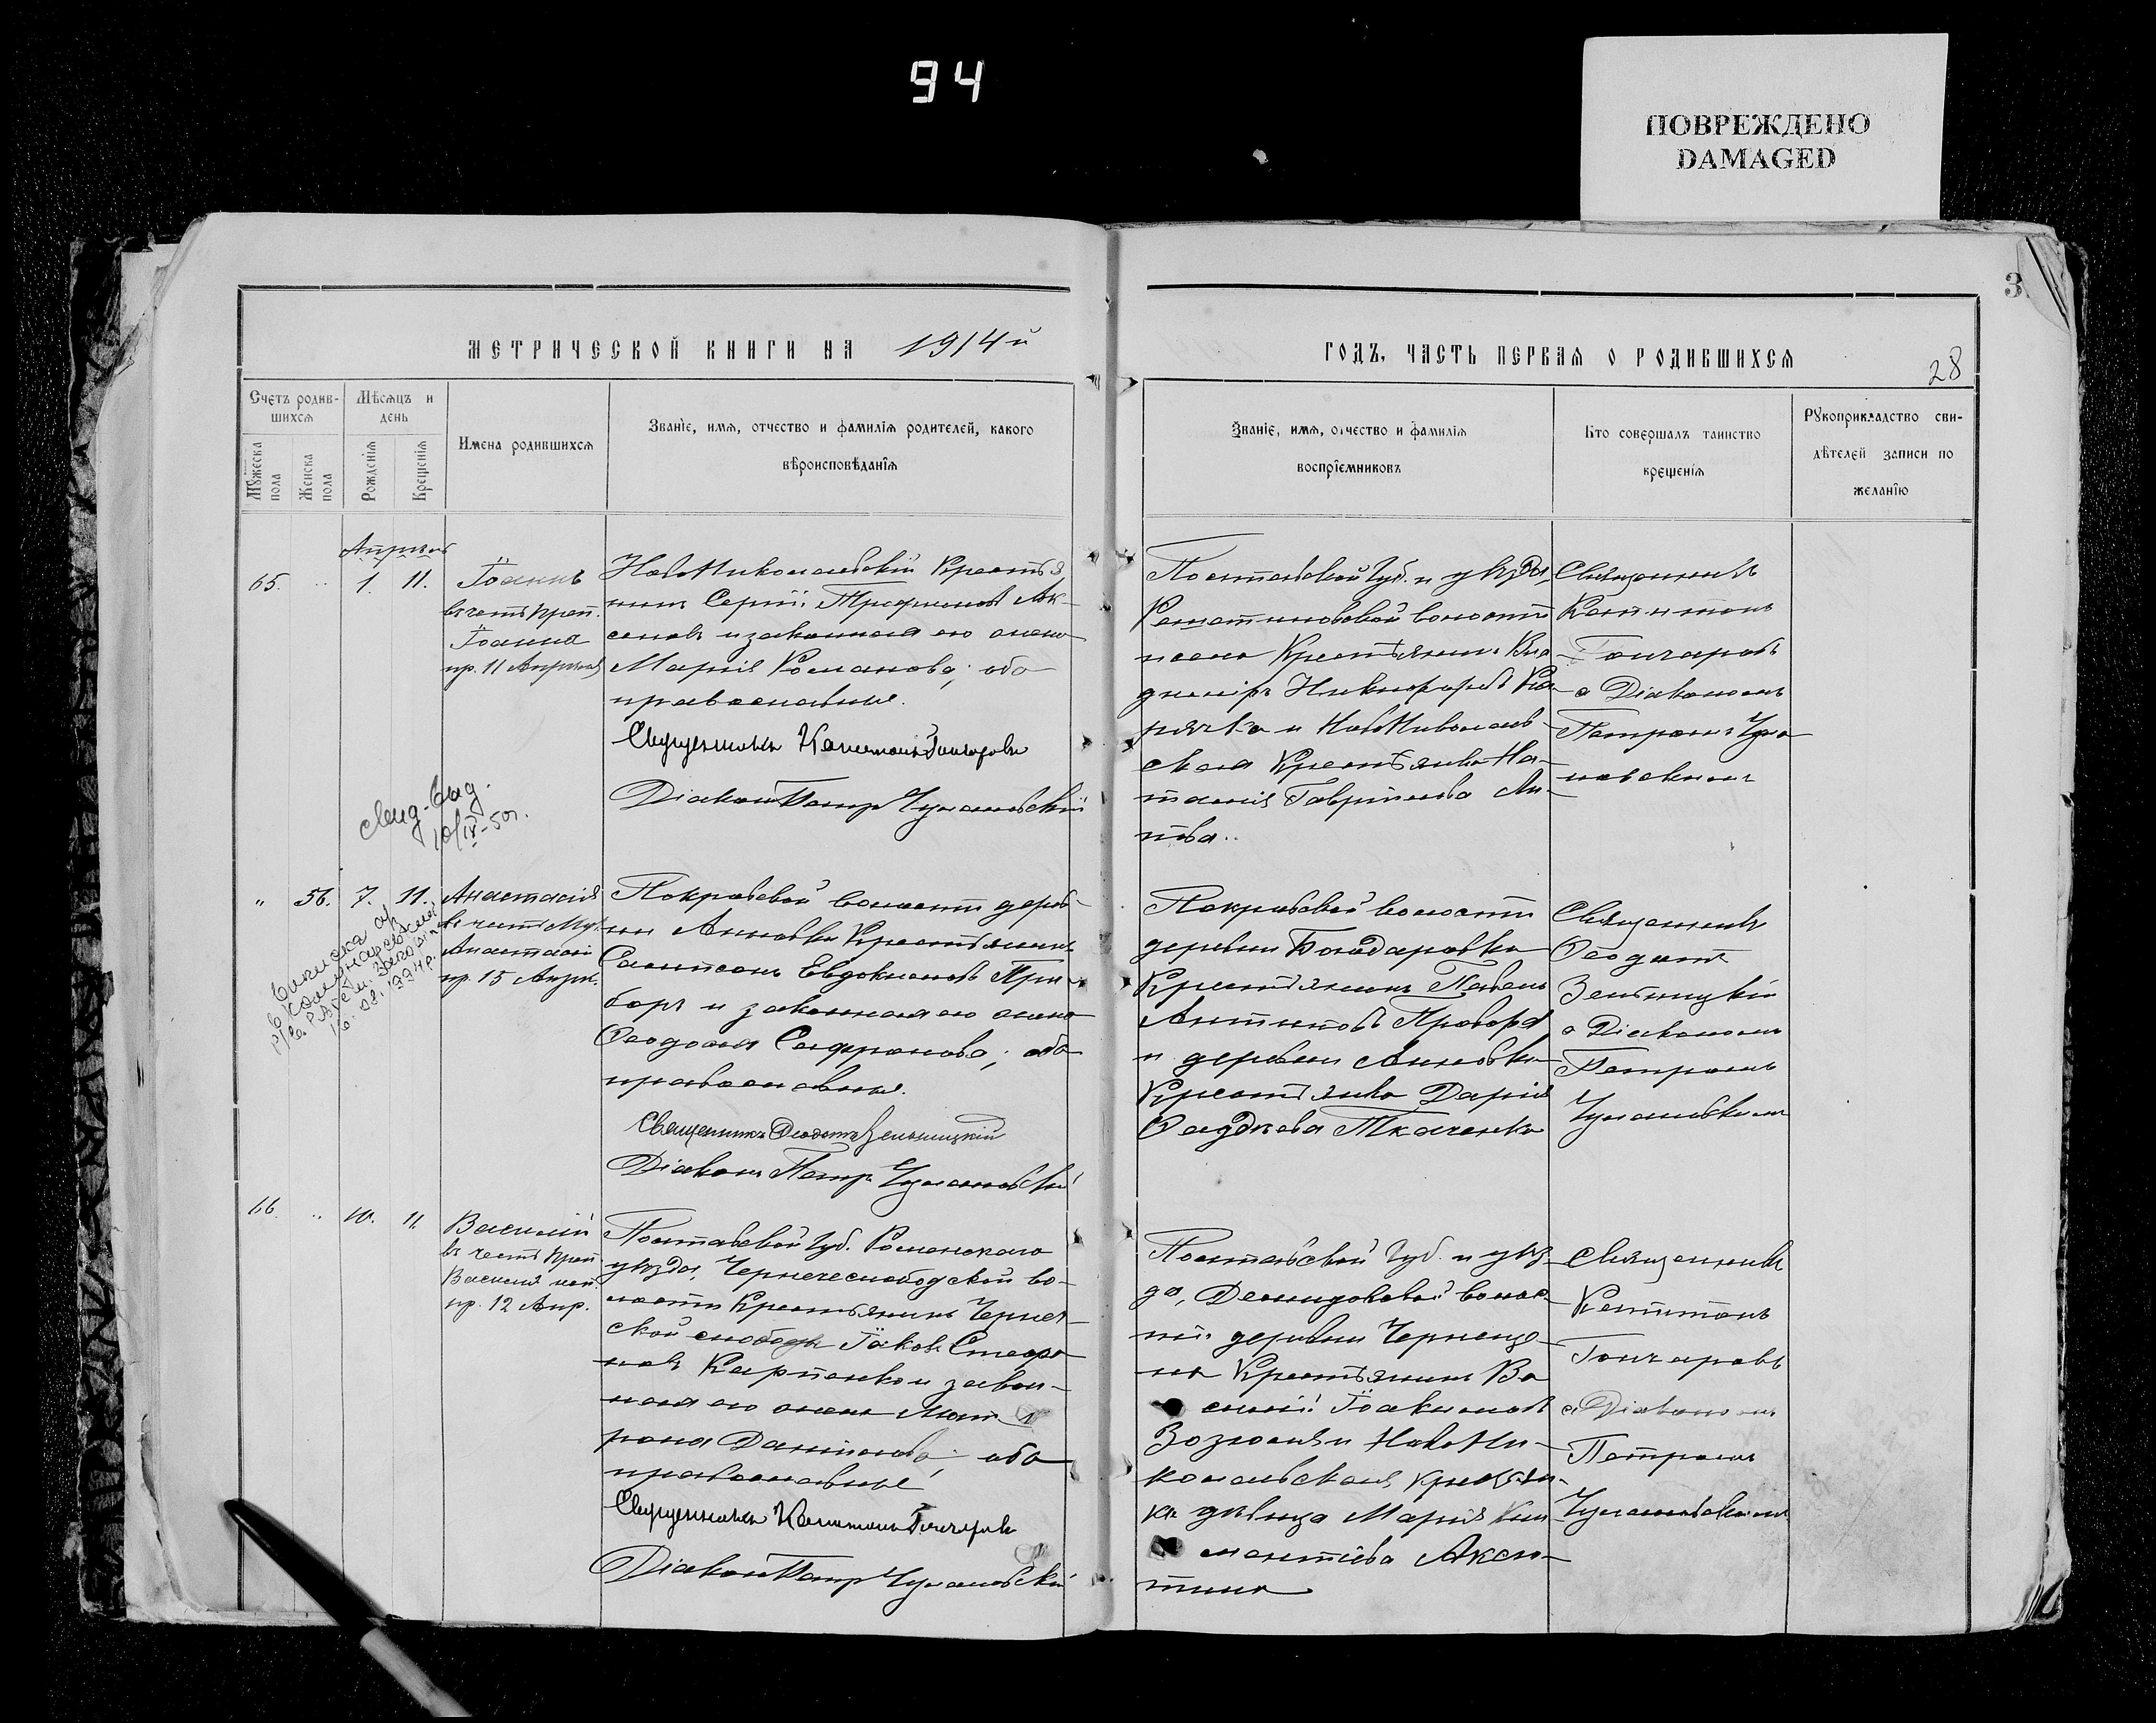 94
ПОВРЕЖДЕНО
DAMAGED
3
МЕТРИЧЕСКОЙ КНИГИ НА 1914й
ГОДЪ, ЧАСТЬ ПЕРВАЯ О РОДИВШИХСЯ
28
Счетъ родив-
шихся
Мѣсяцъ и
день
Мужеска
пола
Женска
пола
Рожденія
Крещенія
Имена родившихся
Званіе, имя, отчество и фамилія родителей, какого
вѣроисповѣданія
Званіе, имя, отчество и фамилія
воспріемниковъ
Кто совершалъ таинство
крещенія
Рукоприкладство сви-
дѣтелей записи по
желанію
Апрель
65. " 1. 11.
Іоаннъ
въ честь преп.
Іоанна
пр. 11 Апреля
НовоНиколаевскій Крестья
нинъ Сергій Трофимовъ Ак-
сеновъ и законная его жена
Марія Романова; оба
православные.
Священникъ Капитонъ Гончаровъ
Діаконъ Петръ Чулановскій
Полтавской Губ. и уѣзда,
Решетиловской волости
и села Крестьянинъ Вла-
диміръ Никифоровъ Ка-
рячка и НовоНиколаев-
ская Крестьянка На-
талія Гавриилова Ли-
това..
Священникъ
Капитонъ
Гончаровъ
с Діакономъ
Петромъ Чула
новскимъ
10/IV-50г.
" 56. 7. 11.
Анастасія
въ честь Муч.
Анастасіи
пр. 15 Апрл.
Покровской волости дерев-
ни Анновки Крестьянинъ
Сампсонъ Евдокимовъ При-
боръ и законная его жена
Феодосія Сафронова; оба
православные.
Священникъ Феодотъ Зеленицкій
Діаконъ Петръ Чулановскій
Покровской волости
деревни Бондаровки
Крестьянинъ Павелъ
Антиповъ Провора
и деревни Анновки
Крестьянка Дарія
Ткаченко
Священникъ
Феодотъ
Зеленицкій
с Діакономъ
Петромъ
Чулановскимъ
66. " 10. 11.
Василій
въ честь преп.
Василія
пр. 12 Апр.
Полтавской Губ. Роменскаго
уѣзда, Чернечеслободской во-
лости Крестьянинъ Чернеч-
ской слободы Іаковъ Стефа-
новъ Карпенко и закон-
ная его жена Мат
рона Даніилова; оба
православные
Священникъ Капитонъ Гончаровъ
Діаконъ Петръ Чулановскій
Полтавской Губ. и уѣз-
да, Демидовской волос-
ти деревни
Крестьянинъ Ва
силій Іоакимовъ
и НовоНи-
колаевская крестьян-
ка дѣвица Марія Кли-
ментіева Аксю-
тина
Священникъ
Капитонъ
Гончаровъ
с Діакономъ
Петромъ
Чулановскимъ